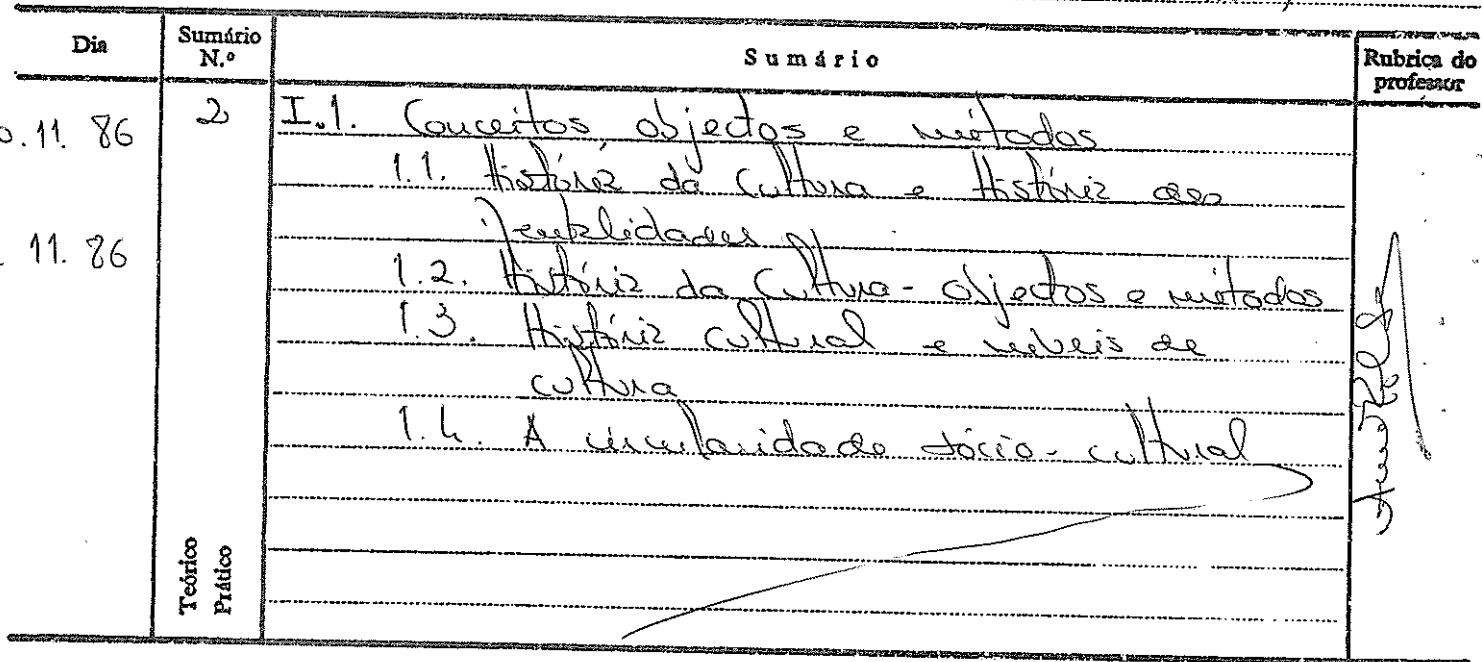 Dia
Sumário N.º
Sumário
Rubrica do professor
0.11.86
2
I.1. Conceitos, objectos e métodos
1.1. História da Cultura e História das
Mentalidades
11.86
1.2. História da Cultura - objectos e métodos
1.3. História cultural e níveis de
cultura
1.4. A circularidade sócio-cultural
Teórico
Prático